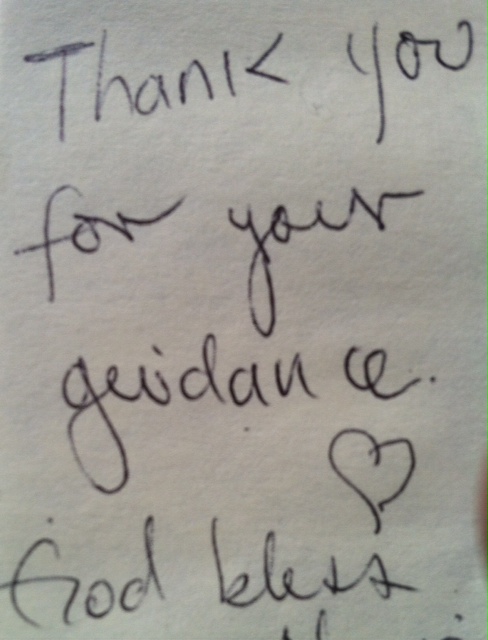 Thank you
for your
guidance.
God bless